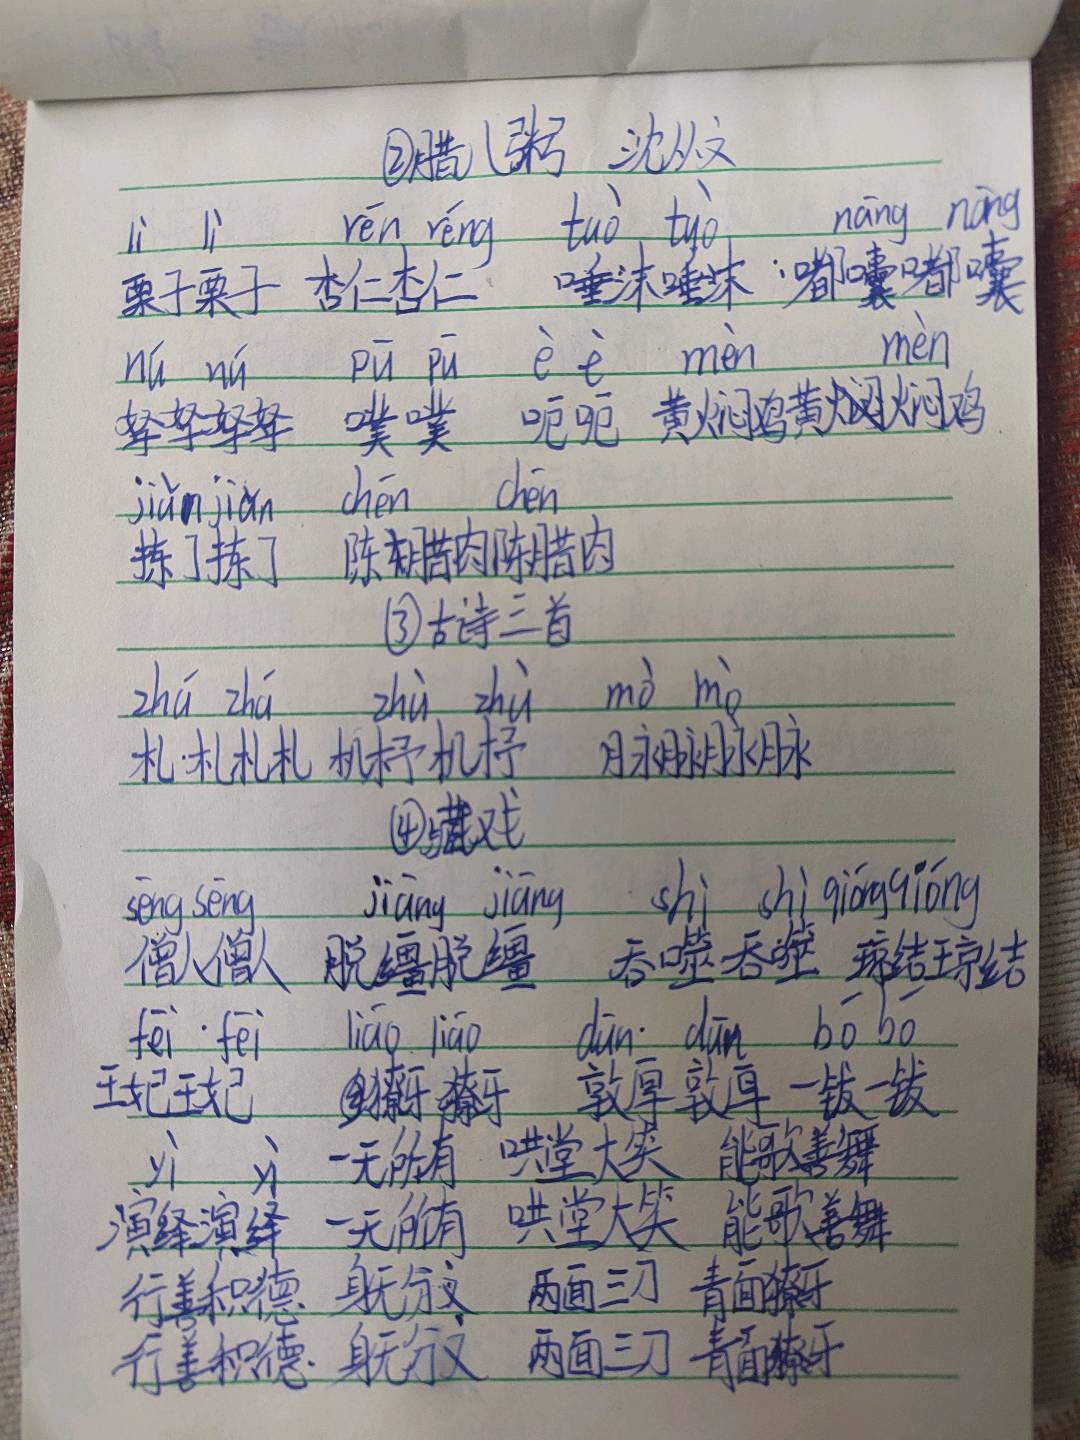 ②腊八粥 沈从文
lì lì rén réng tuò tuò nāng nāng
栗子栗子 杏仁杏仁 唾沫唾沫 嘟囔嘟囔
nú nú pū pū è è mèn mèn
孥孥孥孥 噗噗 呃呃 黄焖鸡黄焖鸡
jiǎn jiǎn chēn chēn
拣了拣了 陈腊肉陈腊肉
③古诗三首
zhá zhá zhù zhù mò mò
札札札札 机杼机杼 脉脉脉脉
④藏戏
sēng sēng jiāng jiāng shì shì qióng qióng
僧人僧人 脱缰脱缰 吞噬吞噬 琼结琼结
fēi fēi liáo liáo dūn dūn bó bó
王妃王妃 獠牙獠牙 敦厚敦厚 一钹一钹
yì yì 一无所有 哄堂大笑 能歌善舞
演绎演绎 一无所有 哄堂大笑 能歌善舞
行善积德 身无分文 两面三刀 青面獠牙
行善积德 身无分文 两面三刀 青面獠牙